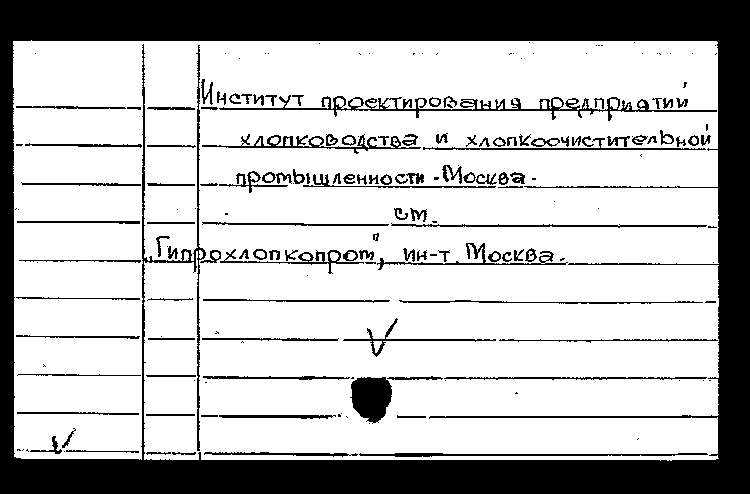 Институт проектирования предприятий
хлопководства и хлопкоочистительной
промышленности. Москва.
см.
„Гипрохлопкопром", ин-т. Москва.